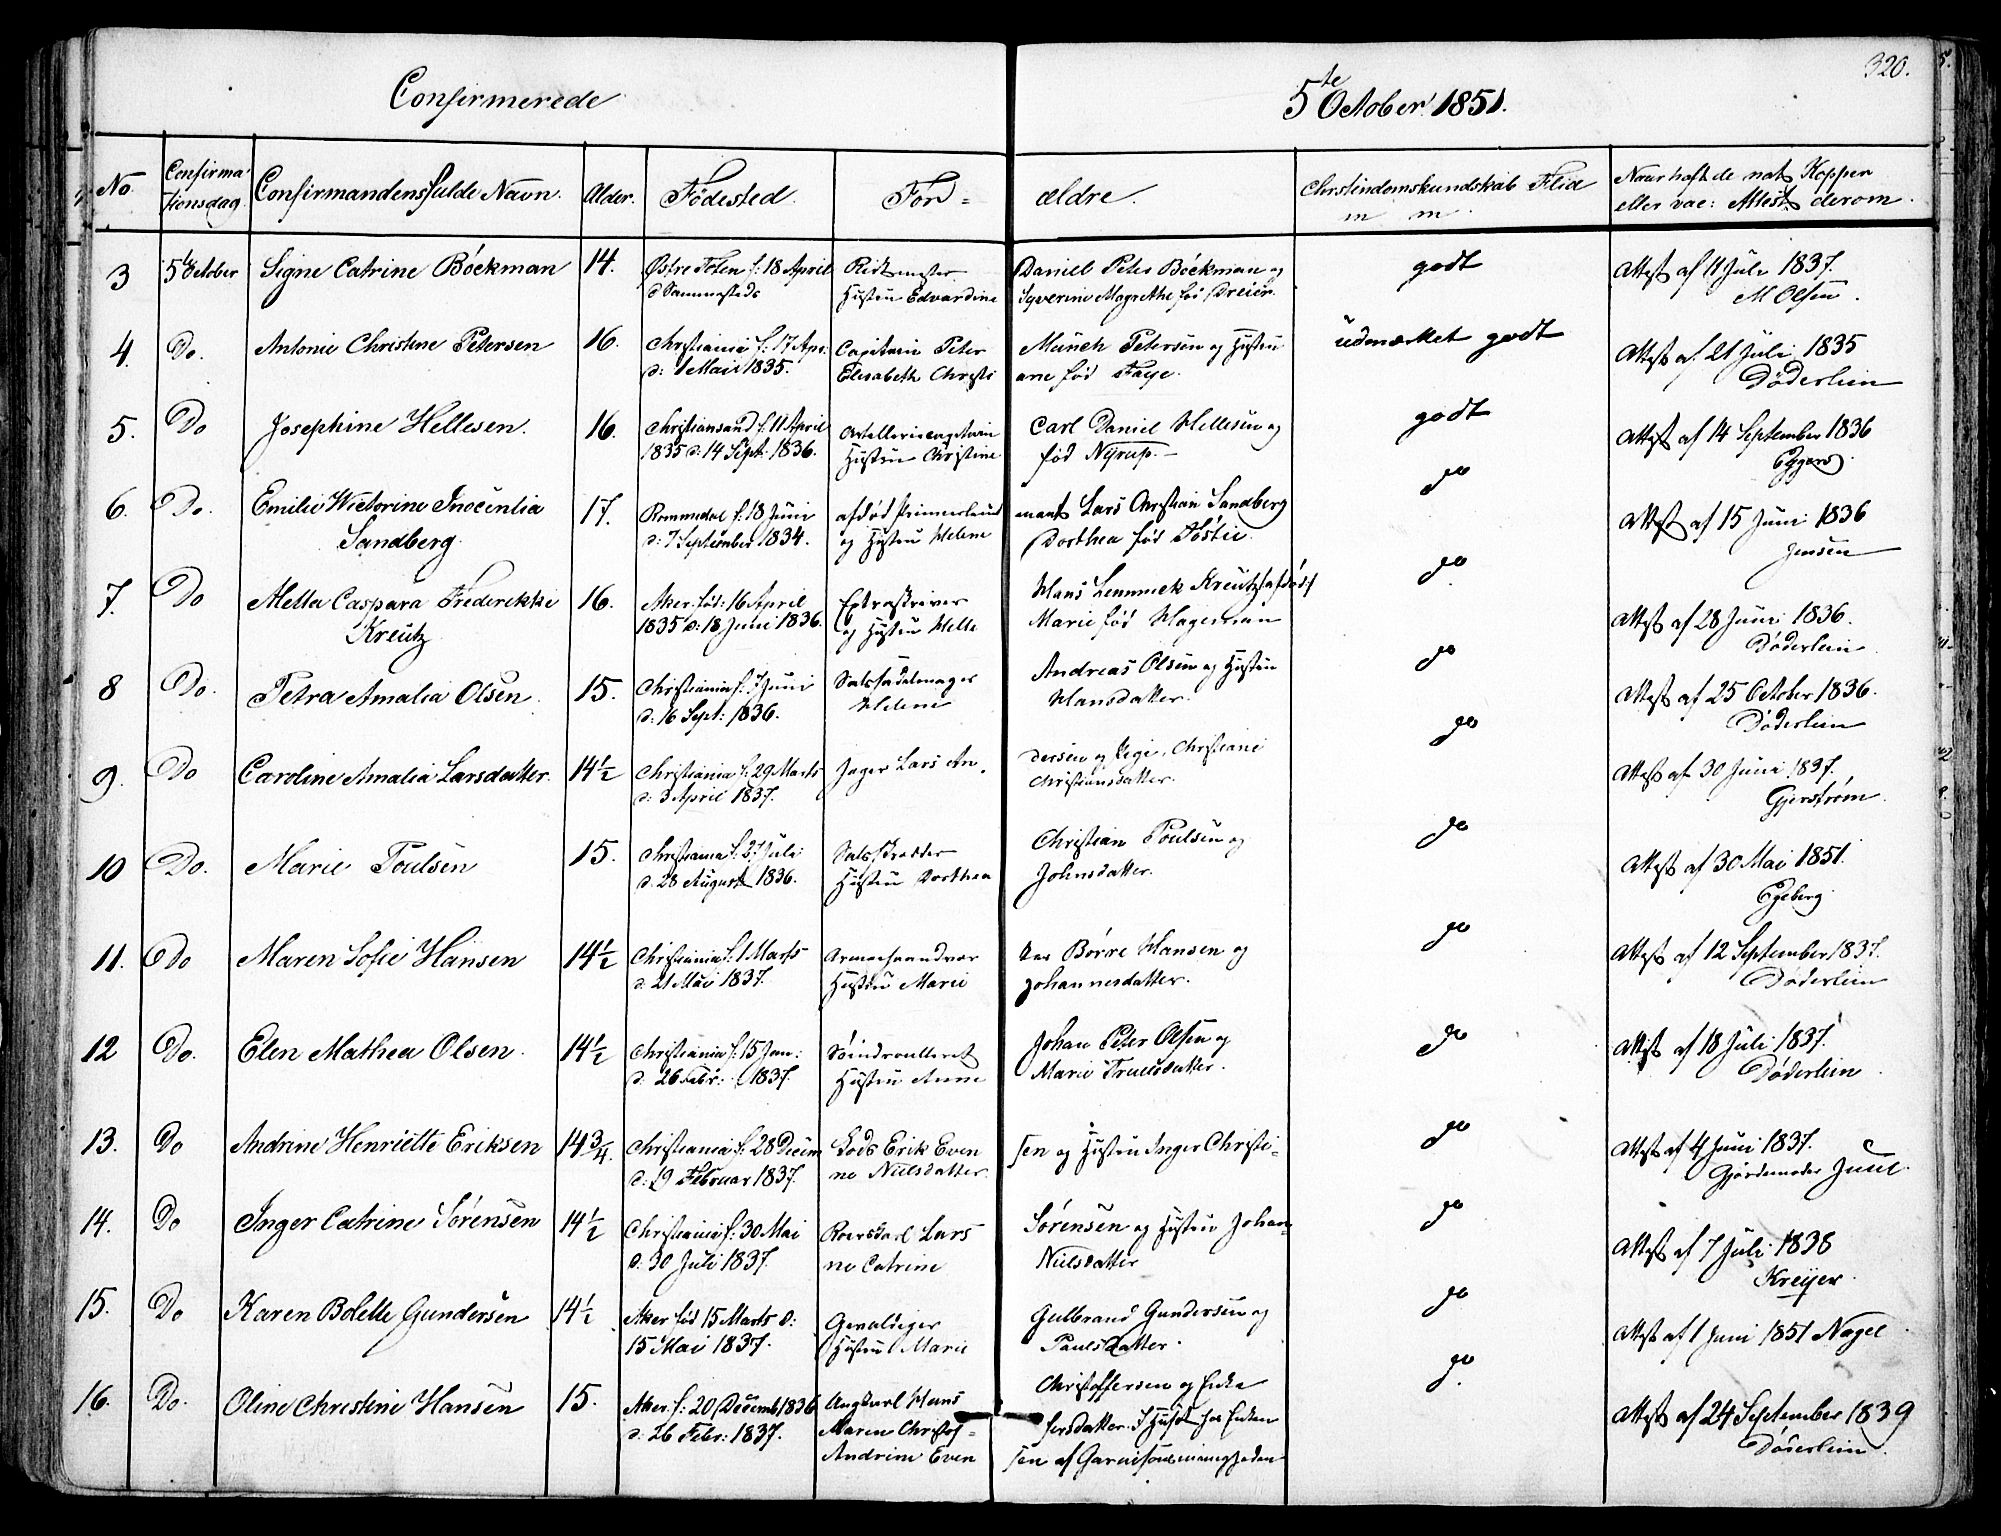 320.
Confirmerede
5te October 1851.
No
Confirma-
tionsdag
Confirmandens fulde Navn.
Alder.
Fødested.
For =
ældre.
Christendomskundskab Flid
m m.
Naar haft de nat: Kopper
eller vac: Attest derom.
3 5te October Signe Catrine Böckman 14. Østre Toten f: 18 April Ridtmester Daniel Peter Böckman og godt Attest af 11 Juli 1837.
d Sammesteds Hustru Edvardine Syverine Magrethe fød Dreier. M Olsen.
4. Do. Antonie Christine Petersen 16. Christiania f: 17 Apr: Capitain Peter Münch Petersen og Hustru üdmærket godt Attest af 21 Juli 1835
d: 1 Mai 1835. Elisabeth Christi ane fød Faye. Döderlein
5. Do Josephine Hellesen. 16. Christiansand f. 11 April Artillericapitain Carl Daniel Hellesen og godt Attest af 14 September 1836
1835 d: 14 Sept: 1836. Hustru Christine fød Nyrup. Eggers.
6. Do. Emilie Wictorine Inocentia 17. Rommedal f: 18 Juni afdød Primierleut mant Lars Christian Sandberg do Attest af 15 Juni 1836
Sandberg. d: 7 September 1834. og Hustru Helene Dorthea fød Jensen
7. Do Metta Caspara Frederikke 16. Aker. fød: 16 April Extraskriver Hans Lemmek Kreutz (afdød) do Attest af 28 Juni 1836.
Kreutz 1835 d: 18 Juni 1836. og Hustru Helle Marie fød Hageman Döderlein
8 Do. Petra Amalia Olsen. 15. Christiania f: 7 Juni Salsadelmager Andreas Olsen og Hustru do Attest af 25 October 1836.
d: 16 Sept: 1836. Helene Hansdatter. Döderlein
9. Do Caroline Amalia Larsdatter. 14½ Christiania f: 29 Marts Jæger Lars An, dersen og Pige, Christiane do Attest af 30 Juni 1837.
d: 3 April 1837. Christiansdatter. Gjerström.
10 Do. Marie Poulsen 15. Christiania f: 27 Juli Christian Poulsen og do Attest af 30 Mai 1851.
d. 28 August 1836. Hustru Dorthea Johnsdatter. Egeberg
11. Do Maren Sofie Hansen 14½ Christiania f. 1 Marts Armehaandvær ker Börre Hansen og do Attest af 12 September 1837.
d: 21 Mai 1837. Hustru Marie Johannesdatter. Döderlein
12 Do. Elen Mathea Olsen. 14½ Christiania f. 15 Jan: Johan Peter Olsen og do Attest af 18 Juli 1837.
d. 26 Febr: 1837. Hustru Anne Marie Truelsdatter. Döderlein
13. Do Andrine Henriette Eriksen 14¾. Christiania f: 28 Decem Lods Erik Even sen og Hustru Inger Christi- do Attest af 4 Juni 1837.
d: 19 Februar 1837. ne Nielsdatter. Gjordemoder Juul.
14. Do Inger Catrine Sörensen 14½ Christiania f: 30 Mai Roerskarl Lars Sörensen og Hustru Johan= do Attest af 7 Juli 1838
d. 30 Juli 1837. ne Catrine Nielsdatter Kreyer.
15. Do Karen Bolette Gundersen 14½ Aker fød 15 Marts d: Gevaldiger Gulbrand Gundersen og do Attest af 1 Juni 1851 Nagel
15 Mai 1837. Hustru Marie Paulsdatter.
16. Do. Oline Christine Hansen 15. Aker. f: 20 Decemb. 1836 Hans Christoffersen og Enke do. Attest af 24 September 1839
d. 26 Febr: 1837. Maren Christof= fersdatter. Enken Döderlein
Andrine Even sen af Garnisonsmenigheden